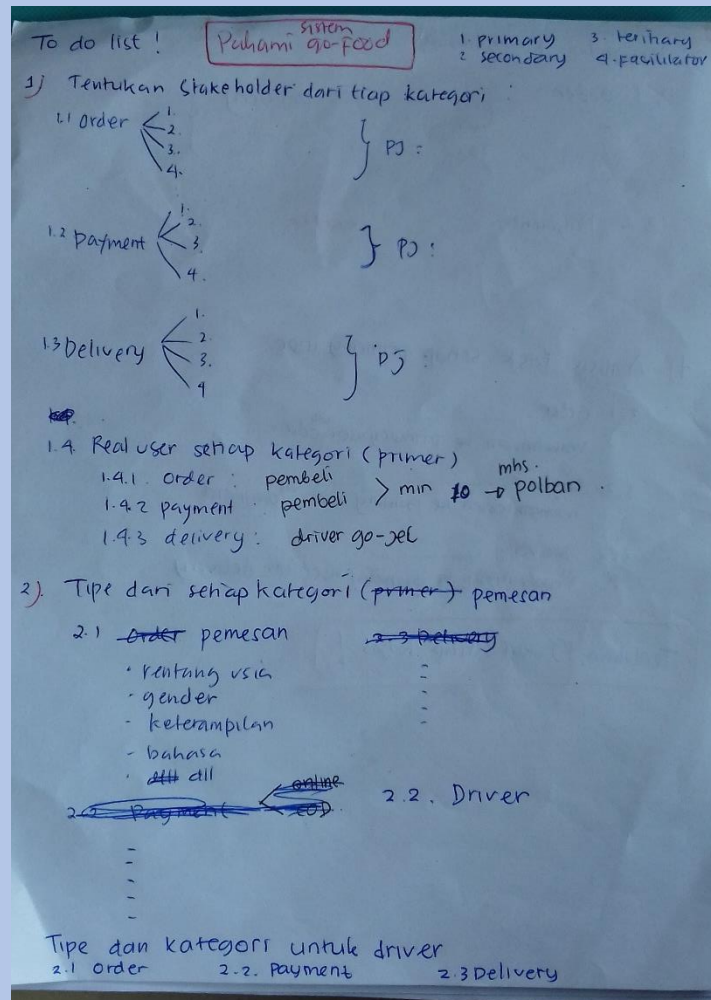 To do list !
Pahami sistem go-food
1. primary 3. tertihary
2 secondary 4. Fasililator
1) Tentukan stakeholder dari tiap kategori :
1.1 Order 1. 2. 3. 4. } PJ :
1.2 Payment 1. 2. 3. 4. } PJ :
1.3 Delivery 1. 2. 3. 4 } PJ :
1.4. Real user setiap kategori (primer)
1.4.1. Order : pembeli
1.4.2 payment : pembeli > min 10 → mhs. polban .
1.4.3 delivery : driver go-jek
2). Tipe dari setiap kategori (primer) pemesan
2.1 Order pemesan 2.3 Delivery
· rentang usia
- gender
- keterampilan
- bahasa
· dll
2.2 Payment online COD
2.2. Driver
Tipe dan kategori untuk driver
2.1 Order 2.2. Payment 2.3 Delivery